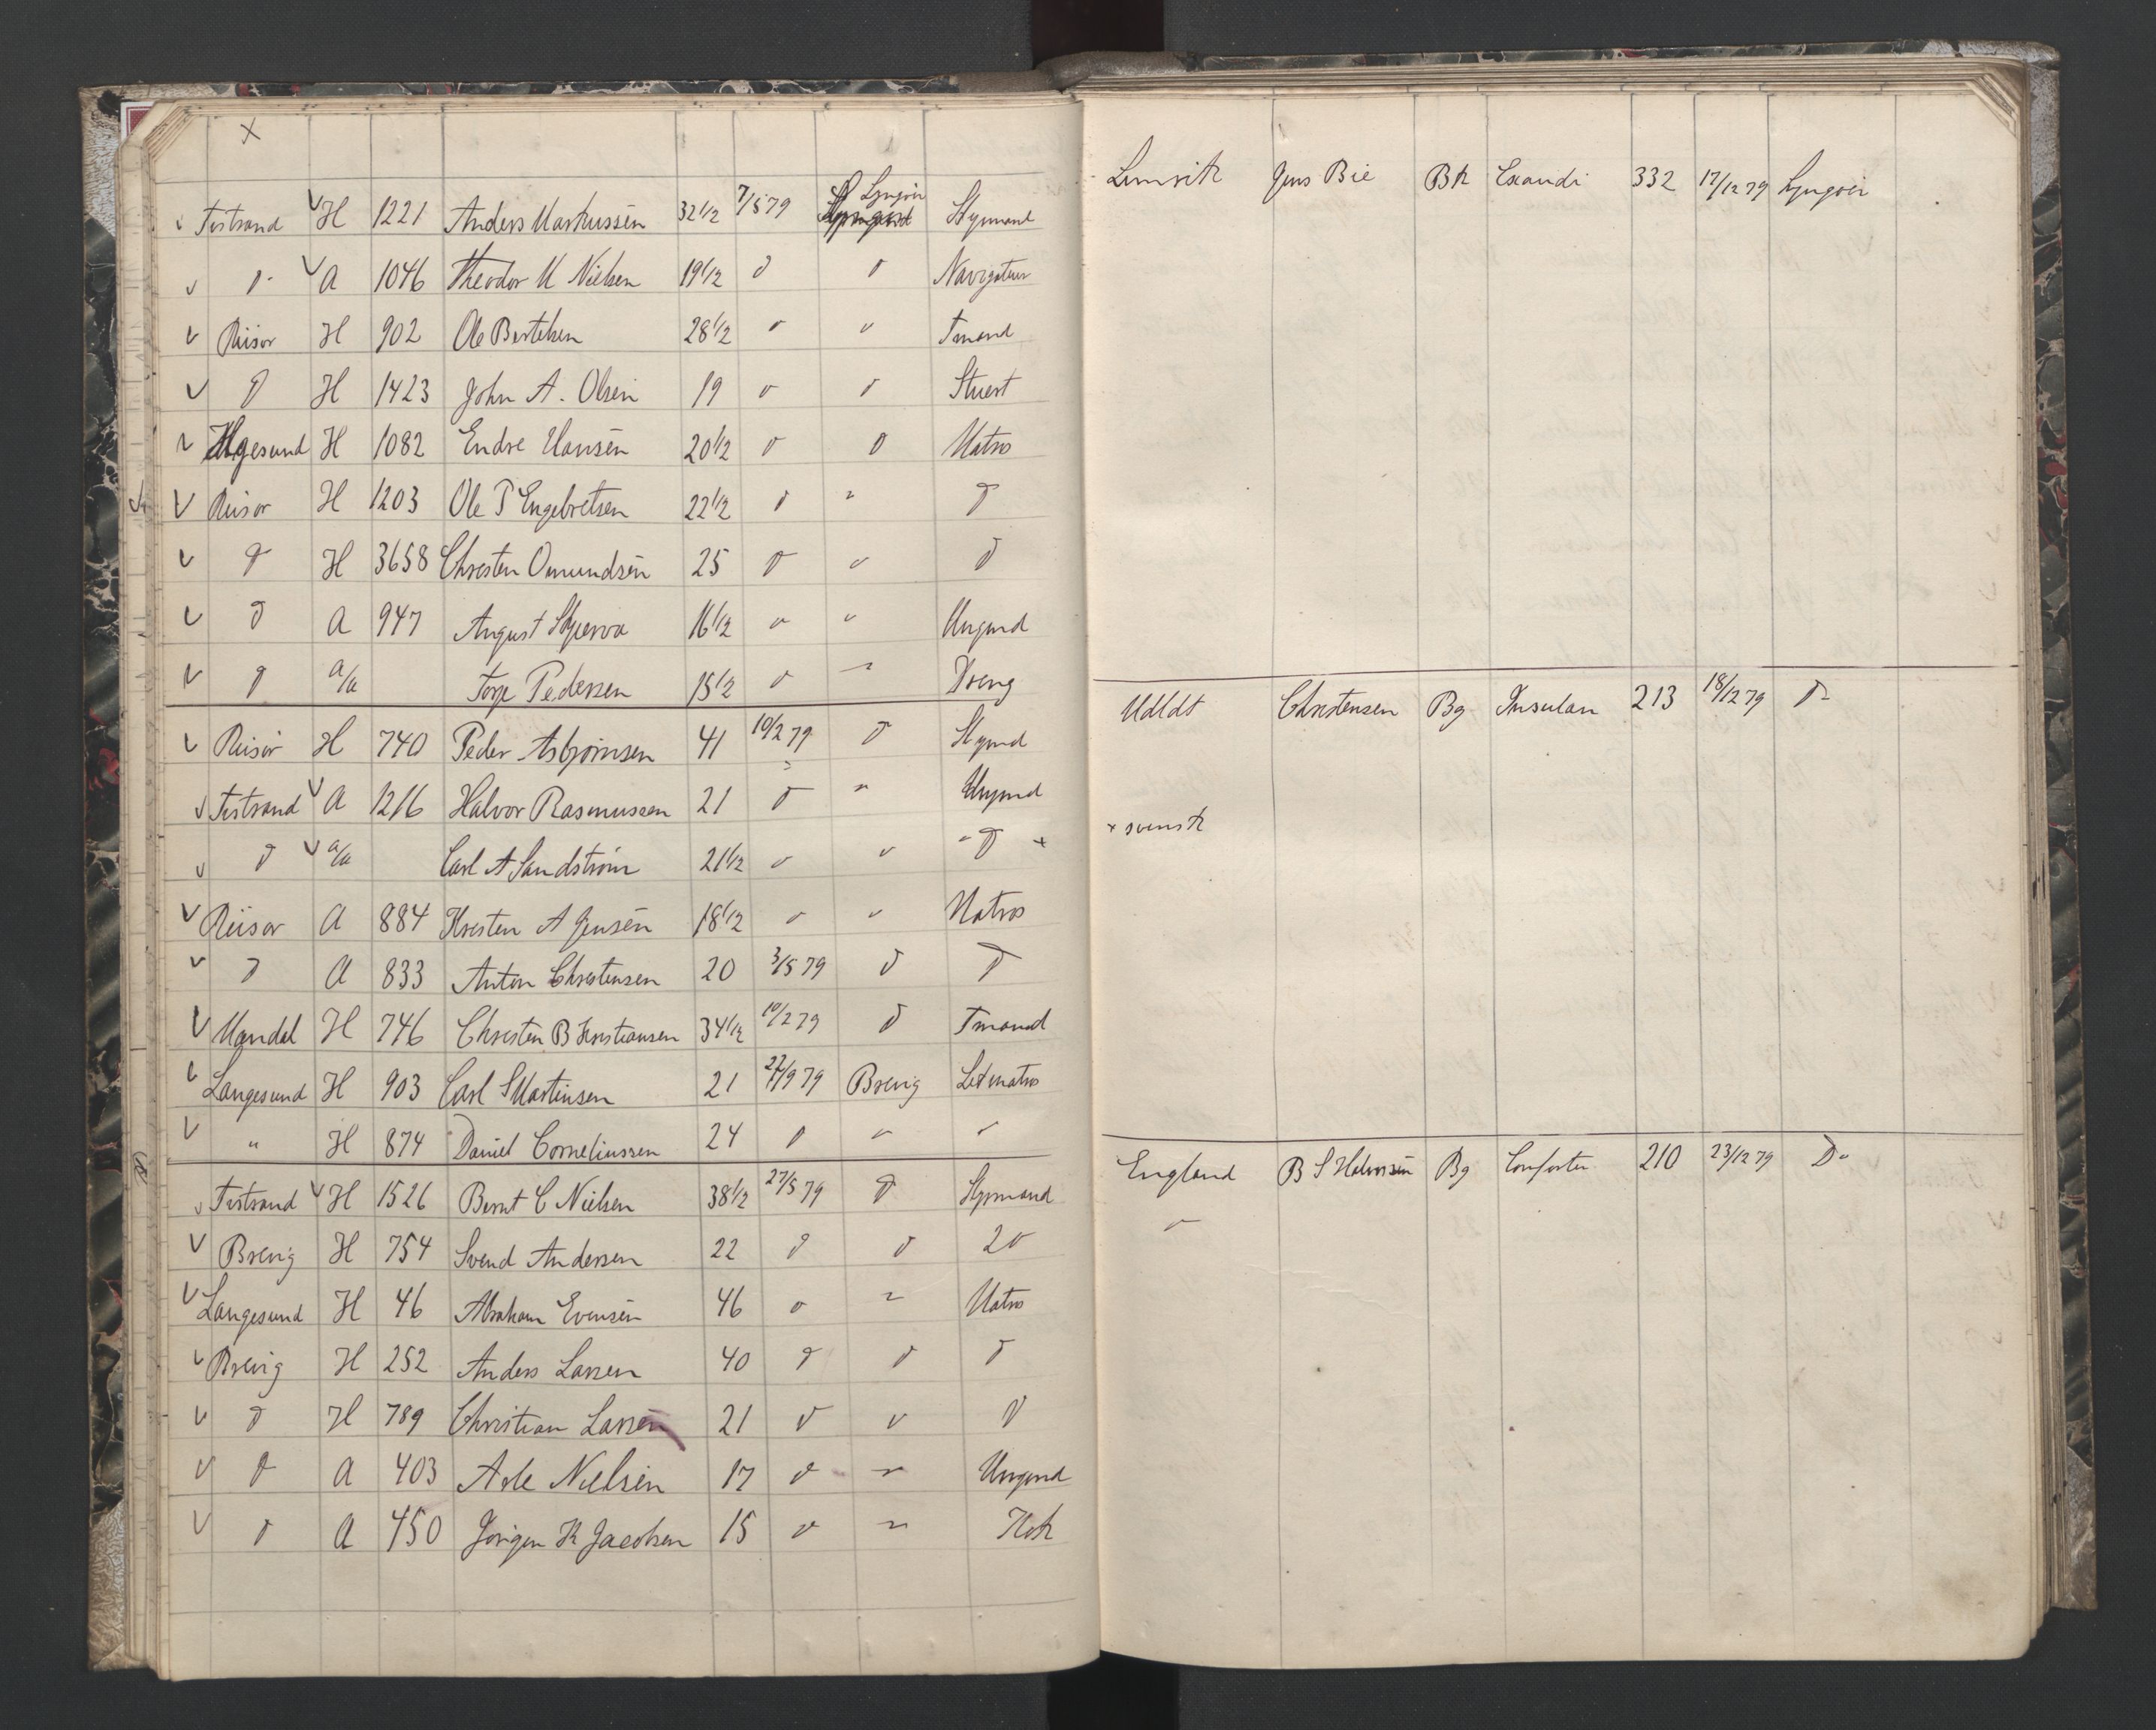 x
v Tvstrand v H 1221 Anders Markussen 32 1/2 7/5 79 Lyngør Styrmand
v D v A 1046 Theodor M Nielsen 19 1/2 D D Navigateur
v Riisør H 902 Ole Bertelsen 28 1/2 " " Tmand
v D H 1423 John A. Olsen 19 " D Stuert
v Hgesund H 1082 Endre Hansen 20 1/2 D D Matros
v Riisør H 1203 Ole T Engebretsen 22 1/2 D " D
v D H 3658 Christen Omundsen 25 D " D
v D A 947 August 16 1/2 " " Ungmd
v D a/a Torje Pedersen 15 1/2 D " Dreng
v Riisør H 740 Peder Asbjørnsen 41 10/2 79 D Stymd
v Tvstrand v A 1216 Halvor Rasmussen 21 D " Ungmd
v D v a/a Carl A Sandstrøm 21 1/2 " " D x
v Riisør A 884 Kristen A Jensen 18 1/2 " " Matros
v D A 833 Anton Christensen 20 3/5 79 D D
v Mandal H 746 Christen B Kristiansen 34 1/2 10/2 79 D Tmand
v Langesund H 903 Carl S Martinsen 21 9 79 Brevig Letmatros
v " H 874 Daniel Corneliussen 24 D " "
v Tvstrand v H 1526 Bernt C Nielsen 38 1/2 27/5 79 D Styrmand
v Brevig H 754 Svend Andersen 22 D D 2D
v Langesund H 46 Abraham Evensen 46 " " Matros
v Brevig H 252 Anders Larsen 40 D D D
v D H 789 Christian Larsen 21 D " D
v D A 403 Asle Nielsen 17 D " Ungmd
v D A 450 Jørgen K Jacobsen 15 D " Kok
Jens Bie Bk Exaudi 332 17/12 79 Lyngøer
Udldt Christensen Bg Insulan 213 18/12 79 D"
x svensk
England B S Halvorsen Bg Comforter 210 23/12 79 D"
"